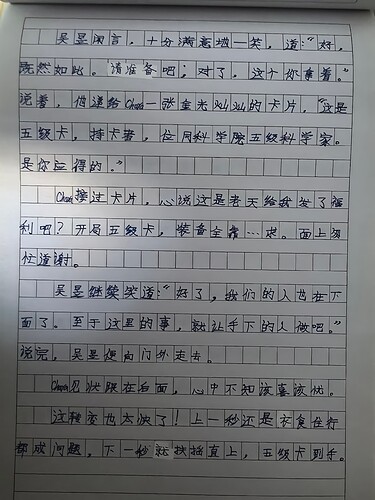 吴昱闻言，十分满意地一笑，道："好，
既然如此。请准备吧；对了，这个你拿着。"
说着，他递给Chan一张金光灿灿的卡片，"这是
五级卡，持卡者，位同科学院五级科学家。
是你应得的。"
Chan接过卡片，心说这是老天给我发了福
利吧？开局五级卡，装备全靠…求。面上须
忙道谢。
吴昱继续笑道："好了，我们的人也在下
面了。至于这里的事，就让手下的人做吧。"
说完，吴昱便向门外走去。
Chan见状跟在后面，心中不知该喜该忧。
这转变也太快了！上一秒还是衣食住行
都成问题，下一秒就扶摇直上，五级卡到手。